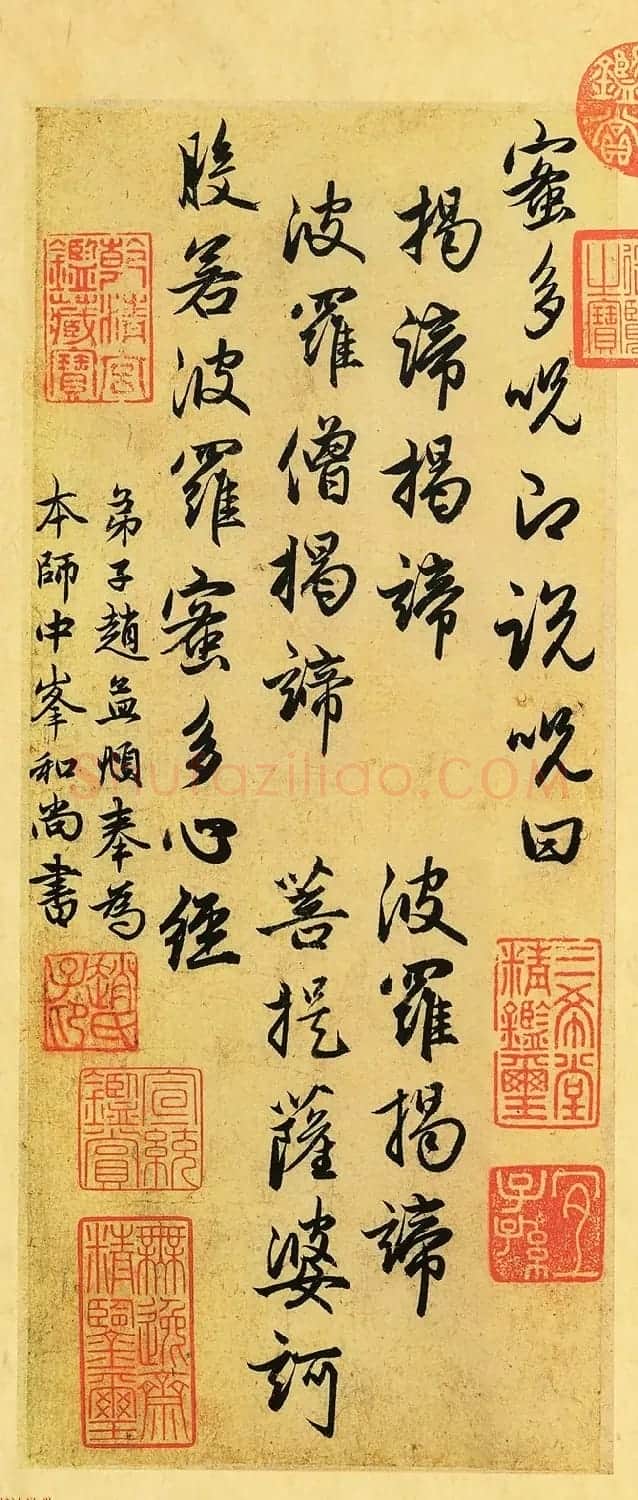 鑑賞
之寶
蜜多呪即説呪曰
三希堂精鑑璽
宜子孫
揭諦揭諦 波羅揭諦
波羅僧揭諦 菩提薩婆訶
般若波羅蜜多心經
弟子趙孟頫奉為
本師中峯和尚書
乾清宮鑑藏寶
趙氏子昂
宣統鑑賞
無逸齋精鑑璽
Shufaziliao.COM